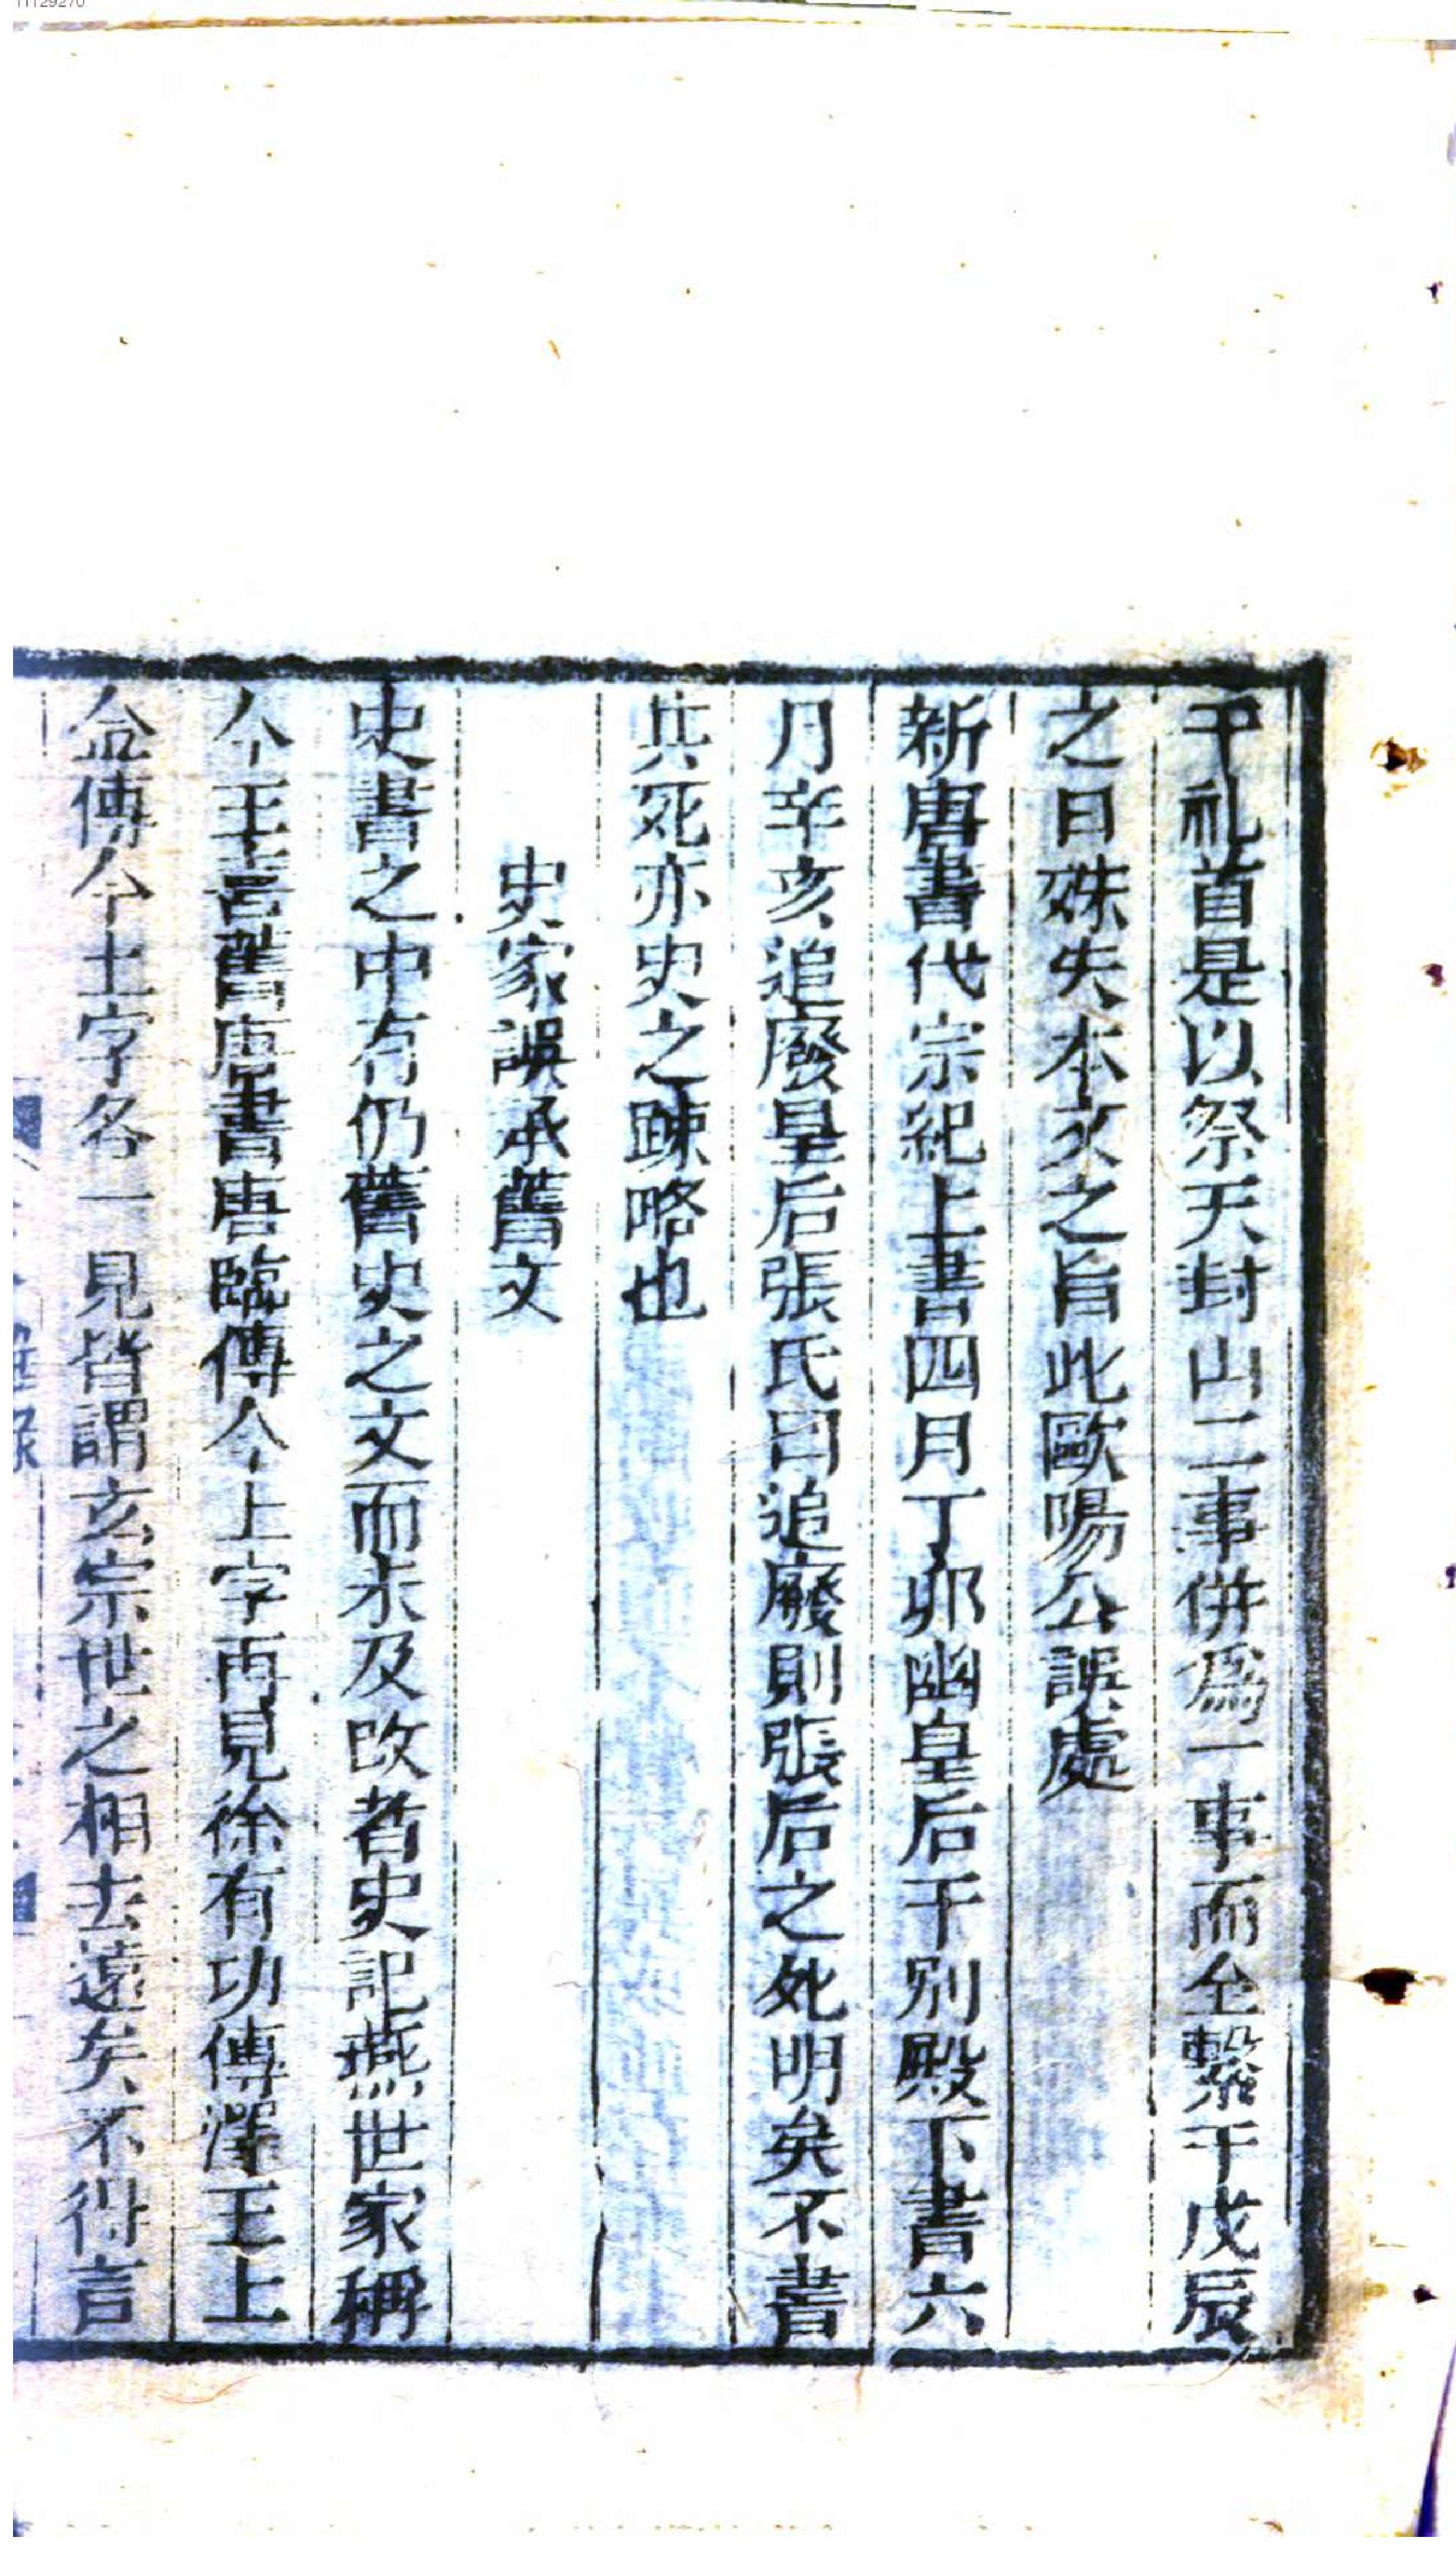 11129270
于社首是以祭天封山二事併爲一事而全繫于戊辰
之日殊失本文之旨此歐陽公誤處
新唐書代宗紀上書四月丁卯幽皇后于别殿下書六
月辛亥追廢皇后張氏曰追廢則張后之死明矣不書
其死亦史之踈略也
史家誤承舊文
史書之中有仍舊史之文而未及改者史記燕世家稱
今王喜舊唐書唐臨傳今上字再見徐有功傳澤王上
金傳今上字各一見皆謂玄宗世之相去遠矣不得言